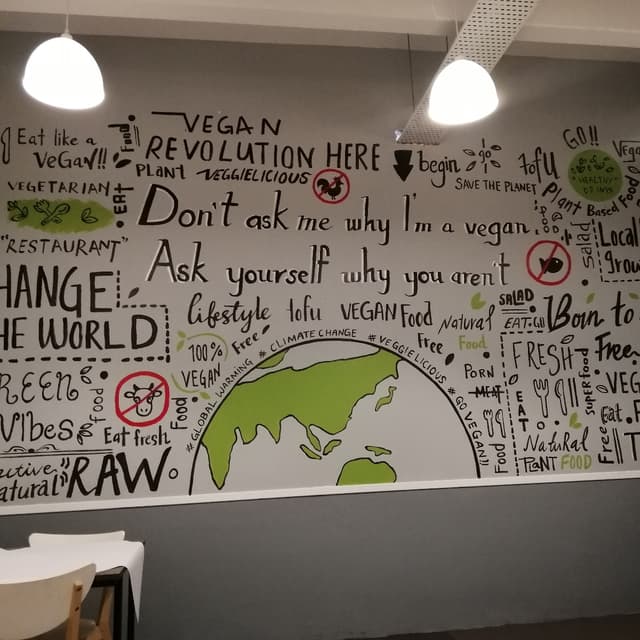 Eat like a
VeGaN!!
Food
VEGETARIAN
EAT
"RESTAURANT"
HANGE
HE WORLD
REEN
Vibes
Food
Eat fresh
Food
atural
RAW
VEGAN
REVOLUTION HERE
PLANT VEGGIELICIOUS
begin
go
SAVE THE PLANET
Don't ask me why I'm a vegan.
Ask yourself why you aren't
lifestyle tofu VEGAN Food
100%
VEGAN
Free
# GLOBAL WARMING # CLIMATE CHANGE # VEGGIELICIOUS # GO VEGAN!!
Free
Natural
Food
PORN
MEAT
Food
tofu
GO!!
HEALTHY
Plant Based Food
Vega
Salad
Local
grow
SALAD
EAT.GO
Born to
FRESH
EAT
Natural
PLANT FOOD
SUPERFOOD
Free
VEG
Eat.
Free